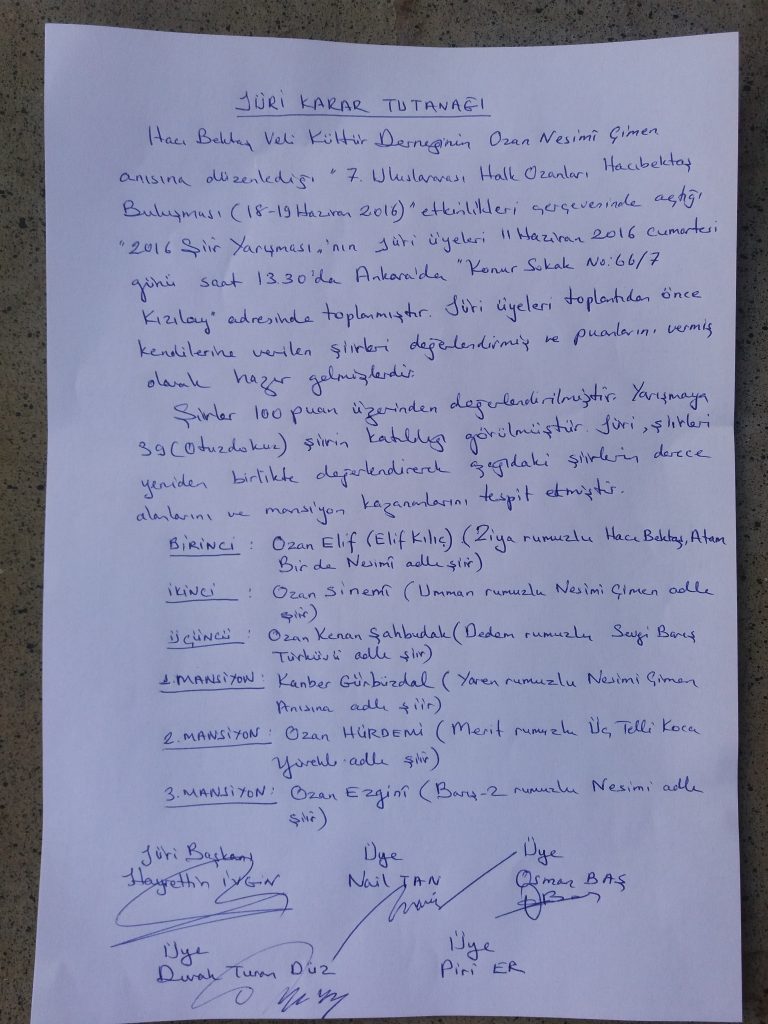 JÜRİ KARAR TUTANAĞI
Hacı Bektaş Veli Kültür Derneğinin Ozan Nesimî Çimen
anısına düzenlediği "7. Uluslararası Halk Ozanları Hacıbektaş
Buluşması (18-19 Haziran 2016)" etkinlikleri çerçevesinde açtığı
"2016 Şiir Yarışması"nın Jüri üyeleri 11 Haziran 2016 cumartesi
günü saat 13.30'da Ankara'da "Konur Sokak No:66/7
Kızılay" adresinde toplanmıştır. Jüri üyeleri toplantıdan önce
kendilerine verilen şiirleri değerlendirmiş ve puanlarını vermiş
olarak hazır gelmişlerdir.
Şiirler 100 puan üzerinden değerlendirilmiştir. Yarışmaya
39 (Otuzdokuz) şiirin katıldığı görülmüştür. Jüri, şiirleri
yeniden birlikte değerlendirerek aşağıdaki şiirlerin derece
alanlarını ve mansiyon kazananlarını tespit etmiştir.
BİRİNCİ : Ozan Elif (Elif Kılıç) (Ziya rumuzlu Hacı Bektaş, Atam
Bir de Nesimî adlı şiir)
İKİNCİ : Ozan Sinemî (Umman rumuzlu Nesimi Çimen adlı
şiir)
ÜÇÜNCÜ : Ozan Kenan Şahbudak (Dedem rumuzlu Sevgi Barış
Türküsü adlı şiir)
1. MANSİYON : Kanber Gürbüzdal (Yaren rumuzlu Nesimi Çimen
Anısına adlı şiir)
2. MANSİYON : Ozan HÜRDEMİ (Merit rumuzlu Üç Telli Koca
Yürekli adlı şiir)
3. MANSİYON : Ozan Ezginî (Barış-2 rumuzlu Nesimi adlı
şiir)
Jüri Başkanı Üye Üye
Hayrettin İVGİN Nail TAN Osman BAŞ
Üye Üye
Durak Turan DÜZ Piri ER